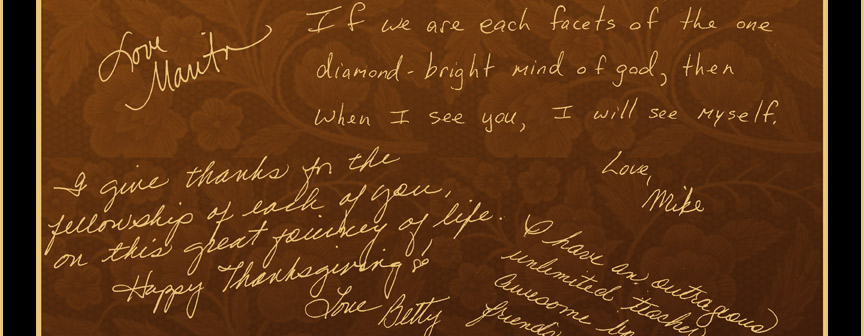 Love
Marita
If we are each facets of the one
diamond-bright mind of god, then
when I see you, I will see myself.
Love,
Mike
I give thanks for the
fellowship of each of you,
on this great journey of life.
Happy Thanksgiving!
Love Betty
I have an outrageous
unlimited teacher
awesome
friends